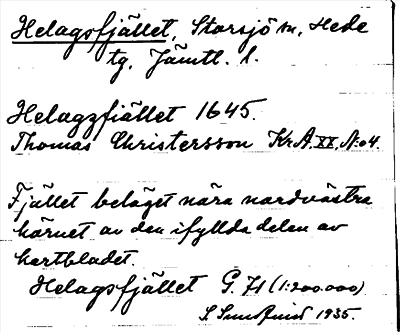 Helagsfjället, Storsjö sn, Hede
tg, Jämtl. l.
Helagzfiället 1645.
Thomas Christersson Kr.A. XX, N:o 4.
Fjället beläget nära nordvästra
hörnet av den ifyllda delen av
kartbladet.
Helagsfjället G. 71 (1:200.000)
S. Sundqvist 1935.